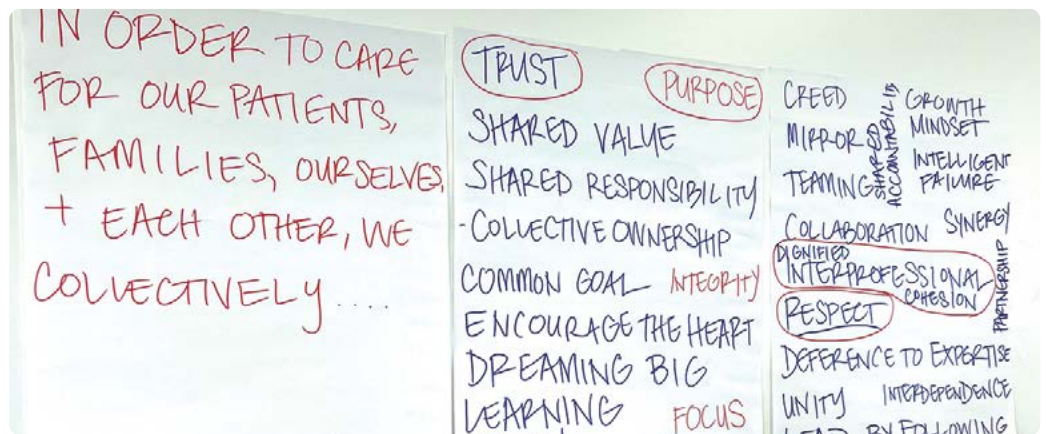 IN ORDER TO CARE
FOR OUR PATIENTS,
FAMILIES, OURSELVES,
+ EACH OTHER, WE
COLLECTIVELY ....
TRUST
PURPOSE
SHARED VALUE
SHARED RESPONSIBILITY
-COLLECTIVE OWNERSHIP
COMMON GOAL
INTEGRITY
ENCOURAGE THE HEART
DREAMING BIG
LEARNING
FOCUS
CREED
MIRROR
TEAMING
SHARED
ACCOUNTABILITY
GROWTH
MINDSET
INTELLIGENT
FAILURE
COLLABORATION
SYNERGY
DIGNIFIED
INTERPROFESSIONAL
COHESION
PARTNERSHIP
RESPECT
DEFERENCE TO EXPERTISE
UNITY
INTERDEPENDENCE
LEAD BY FOLLOWING